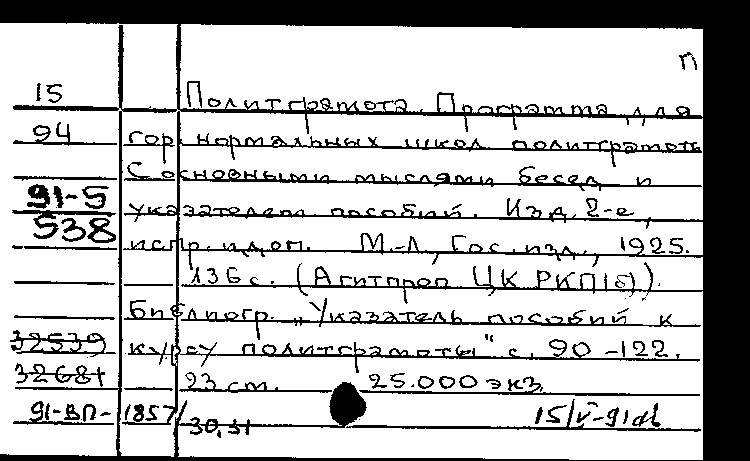 П
15 Политграмота. Программа для
94 гор. нормальных школ политграмоты
С основными мыслями бесед и
91-5 указателем пособий. Изд. 2-е,
538 испр. и доп. М.-Л., Гос. изд., 1925.
136 с. (Агитпроп ЦК РКП(б)).
Библиогр. „Указатель пособий к
32539 курсу политграмоты" с. 90-122.
32681 23 см. 25.000 экз.
91-ВП-1857/ 30,31 15/V-91